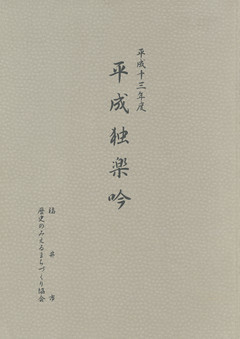 平成十三年度
平成独楽吟
福井市
歴史のみえるまちづくり協会